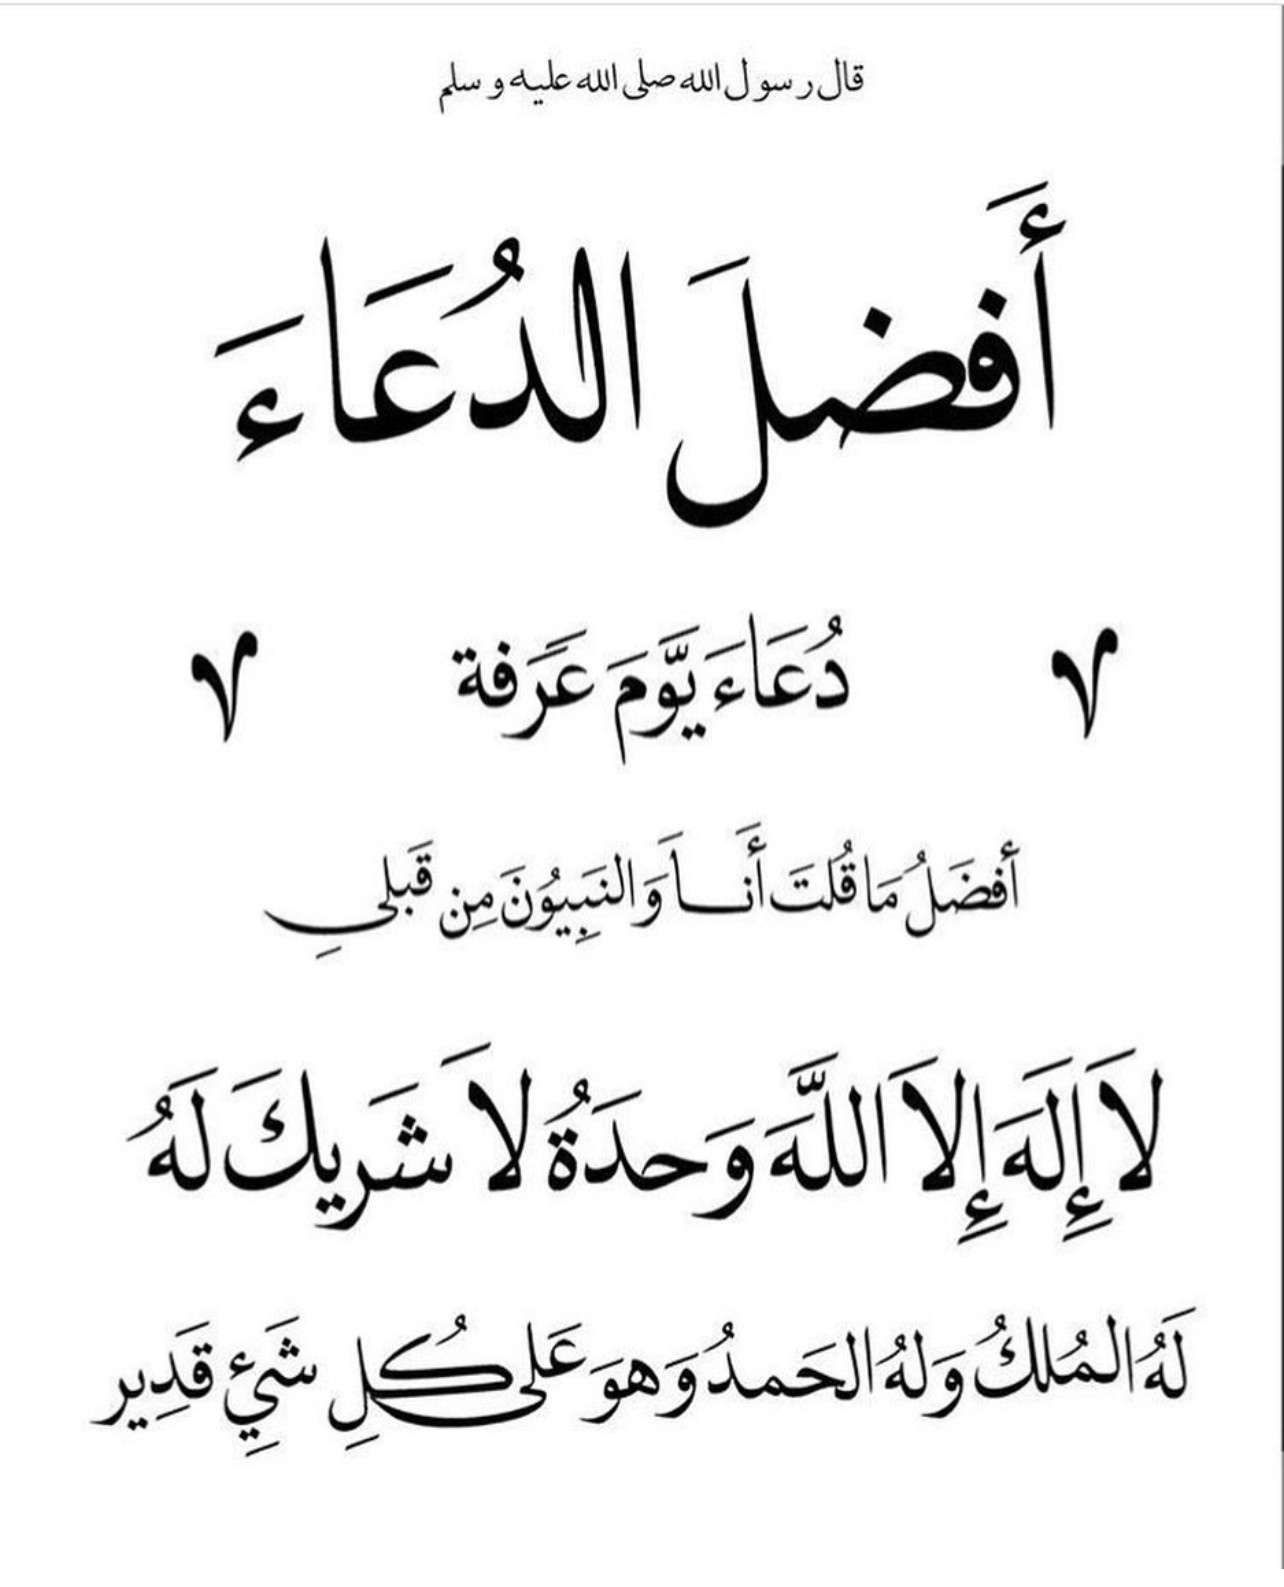 قال رسول الله صلى الله عليه و سلم
أَفضلَ الدُعَاءَ
دُعَاءَ يَّومَ عَرَفة
أَفضَلُ مَا قُلتَ أَنــاَ وَالنَبِيُونَ مِن قَبلي
لاَ إِلَهَ إِلاَ اللَّهَ وَحدَةُ لاَ شَريكَ لَهُ
لَهُ المُلكُ وَلهُ الحَمدُ وَهوَ عَلى كُلِ شَئٍ قَدِير